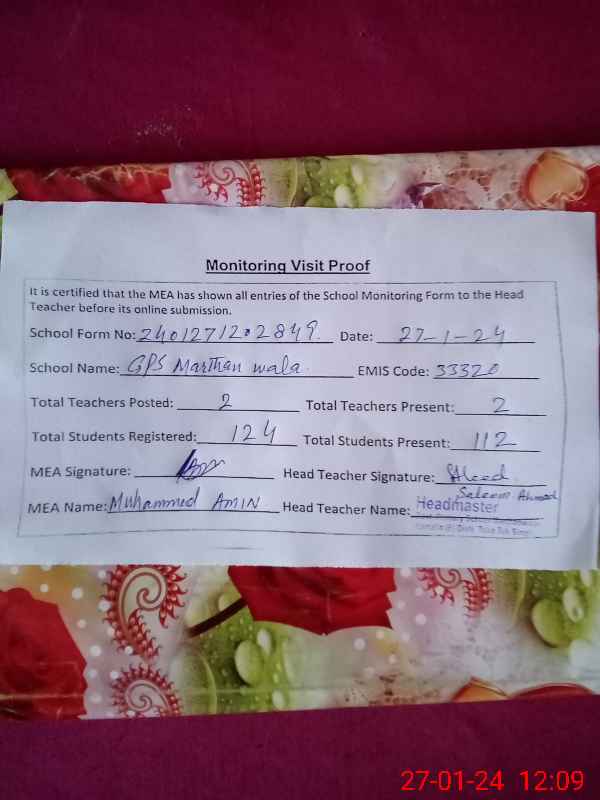 Monitoring Visit Proof
It is certified that the MEA has shown all entries of the School Monitoring Form to the Head
Teacher before its online submission.
School Form No: 2401271202849. Date: 27-1-24
School Name: GPS Marthan wala. EMIS Code: 33320
Total Teachers Posted: 2 Total Teachers Present: 2
Total Students Registered: 124 Total Students Present: 112
MEA Signature: Head Teacher Signature:
Saleem Ahmad
MEA Name: Muhammed AMIN Head Teacher Name: Headmaster
27-01-24 12:09